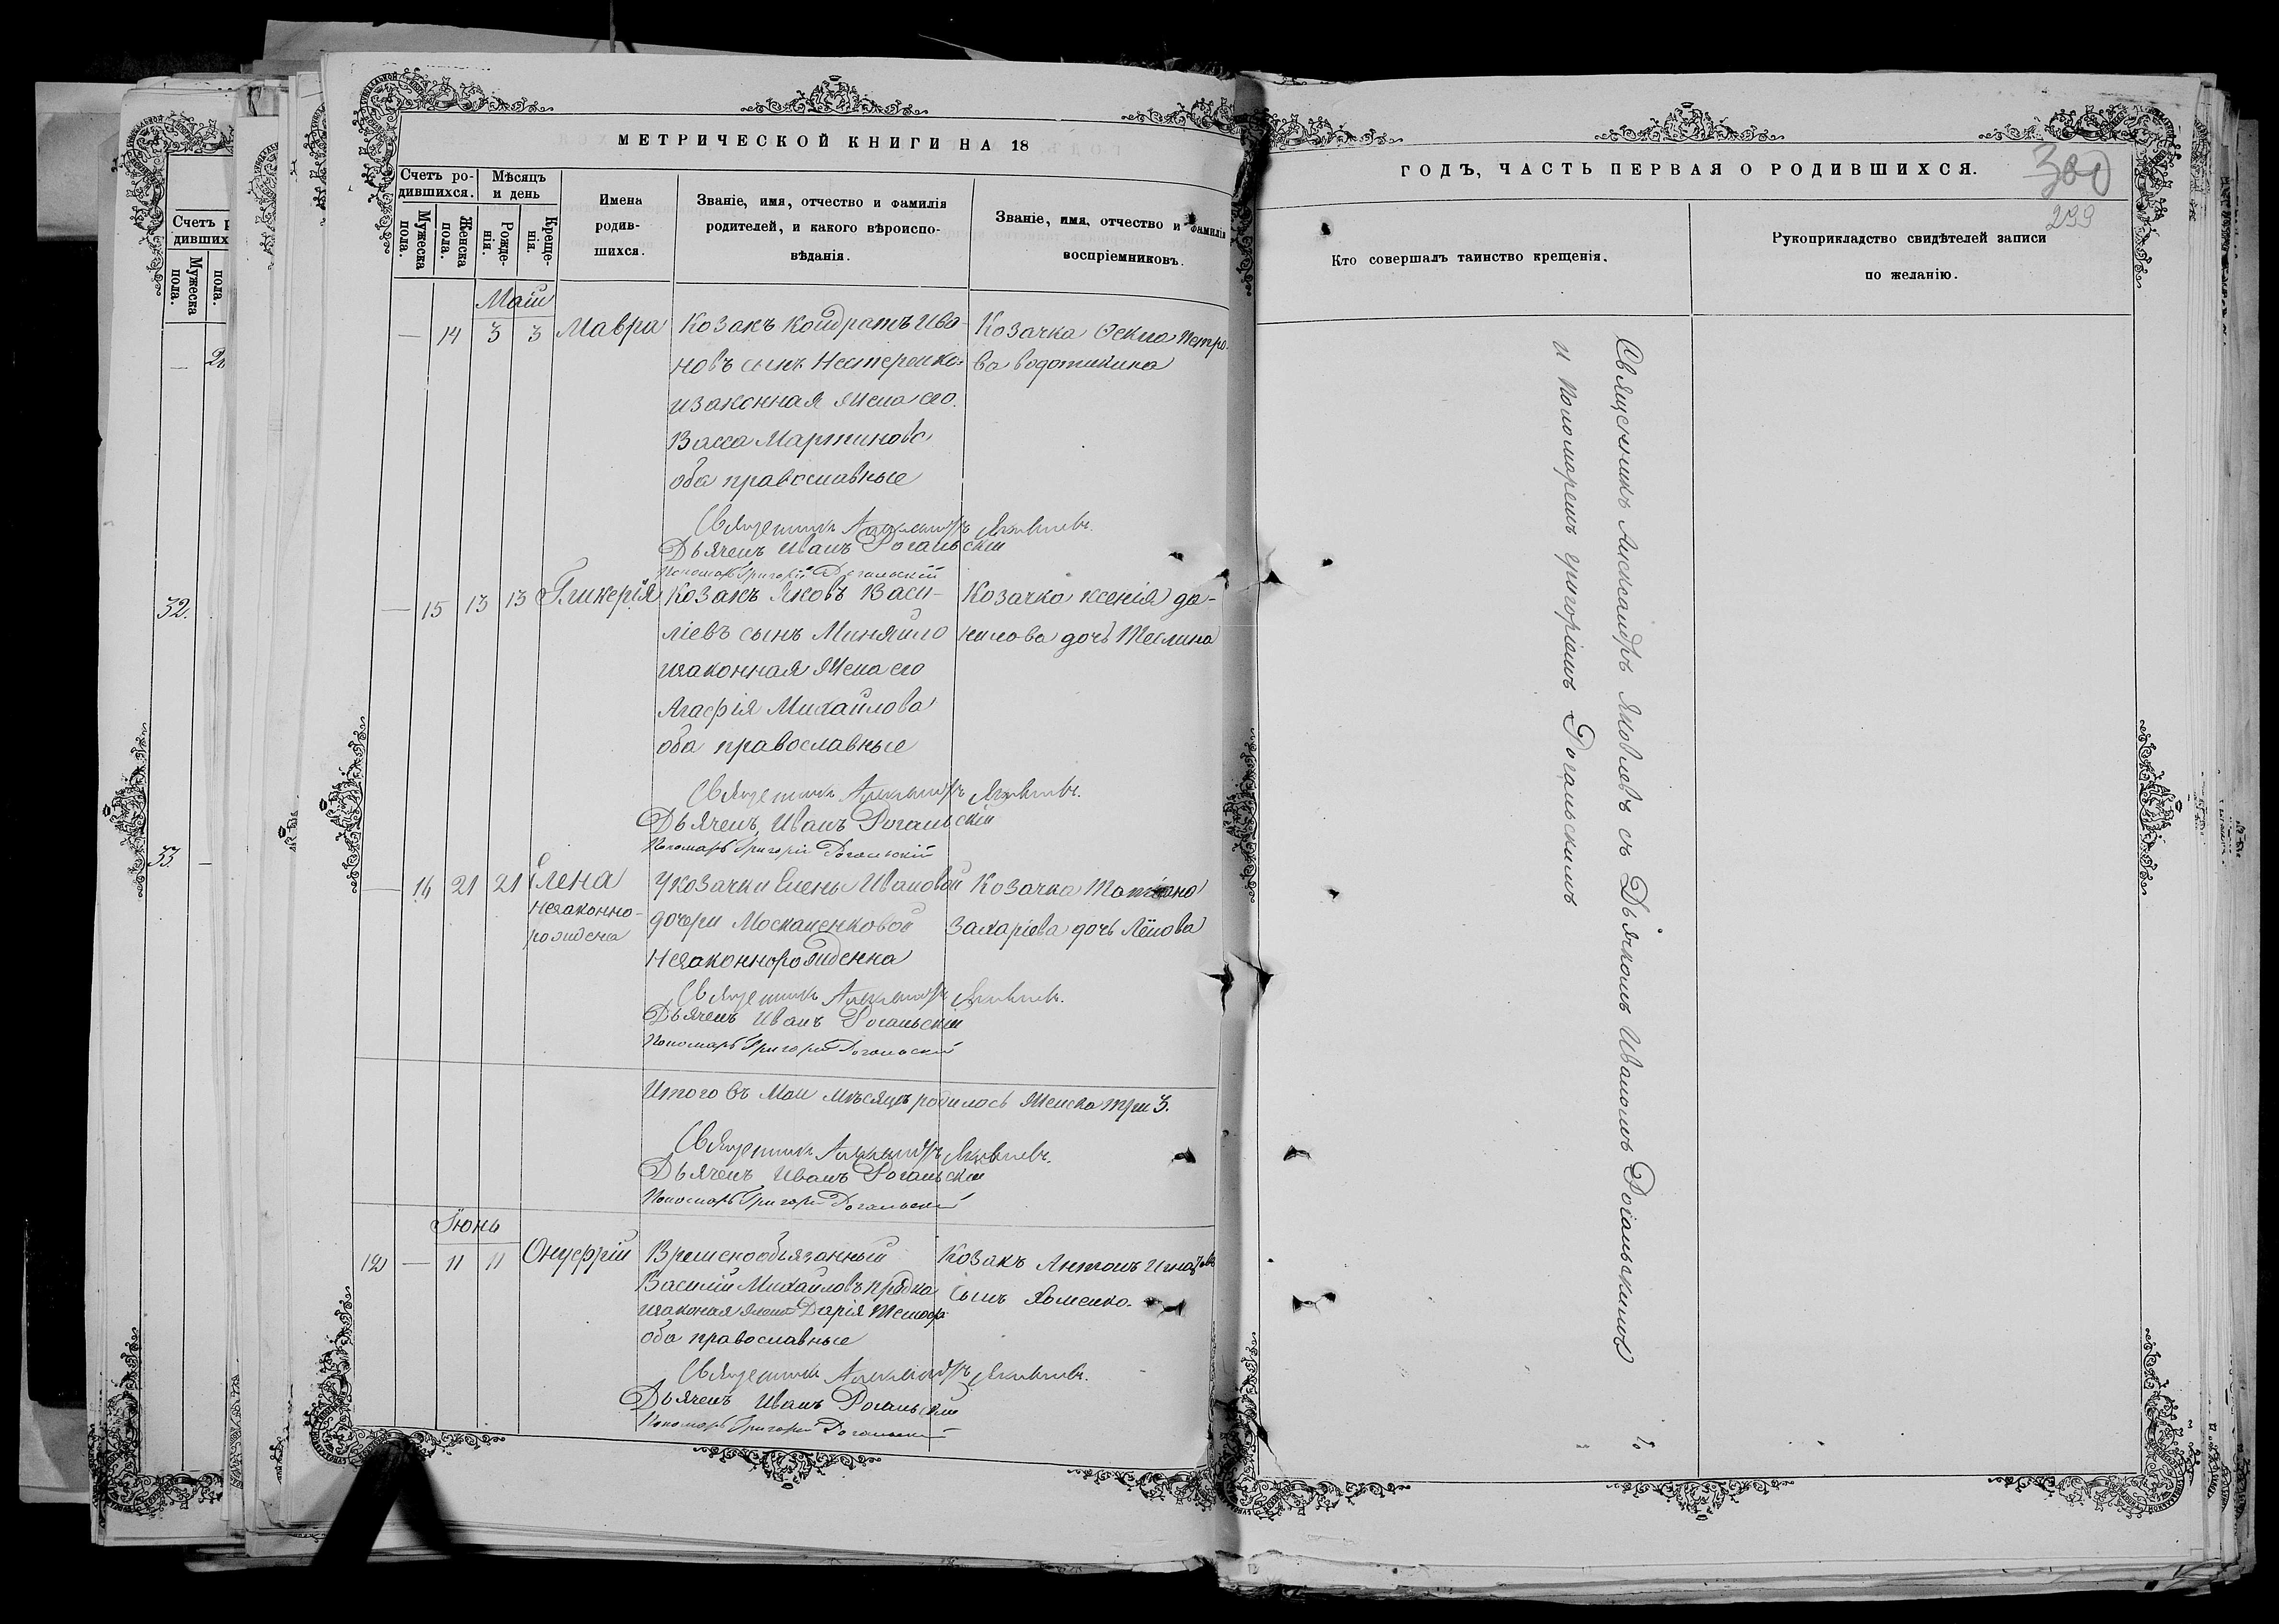 Счетъ р
дивших
Мужеска
пола.
пола.
32.
33.
МЕТРИЧЕСКОЙ КНИГИ НА 18
Счетъ ро-
дившихся.
Мѣсяцъ
и день
Мужеска
пола.
Женска
пола.
Рожде-
нія.
Креще-
нія.
Имена
родив-
шихся.
Званіе, имя, отчество и фамилія
родителей, и какого вѣроиспо-
вѣданія.
Званіе, имя, отчество и фамилія
воспріемниковъ.
Маій
— 14 3 3 Мавра Козакъ Кондратъ Ива- Козачка Ѳекла Петро-
новъ сынъ Нестеренко ва
и законная жена его
Васса Мартинова
оба православные
Священникъ Александръ Яковлевъ.
Дьячекъ Иванъ Рогальскій
Пономарь Григорій Рогальскій
— 15 13 13 Гликерія Козакъ Яковъ Васи- Козачка Ксенія Да-
ліевъ сынъ Миняйло нилова дочь Теслина
и законная жена его
Агафія Михайлова
оба православные
Священникъ Александръ Яковлевъ.
Дьячекъ Иванъ Рогальскій
Пономарь Григорій Рогальскій
— 16 21 21 Елена У козачки Елены Ивановой Козачка Татіана
незаконно- дочери Москаленковой Захаріева дочь
рождена
Незаконнорожденна
Священникъ Александръ Яковлевъ.
Дьячекъ Иванъ Рогальскій
Пономарь Григорій Рогальскій
Итого въ Маи мѣсяцѣ родилось женска три 3.
Священникъ Александръ Яковлевъ.
Дьячекъ Иванъ Рогальскій
Пономарь Григорій Рогальскій
Іюнь
12 — 11 11 Онуфрій Временнообязанный Козакъ Антонъ
Василій Михайловъ Прядка сынъ Хоменко.
и законая жена Дарія
оба православные
Священникъ Александръ Яковлевъ.
Дьячекъ Иванъ Рогальскій
Пономарь Григорій Рогальскій
ГОДЪ, ЧАСТЬ ПЕРВАЯ О РОДИВШИХСЯ.
300
299
Кто совершалъ таинство крещенія.
Рукоприкладство свидѣтелей записи
по желанію.
Священникъ Александръ Яковлевъ съ Дьячкомъ Иваномъ Рогальскимъ
и пономаремъ Григоріемъ Рогальскимъ